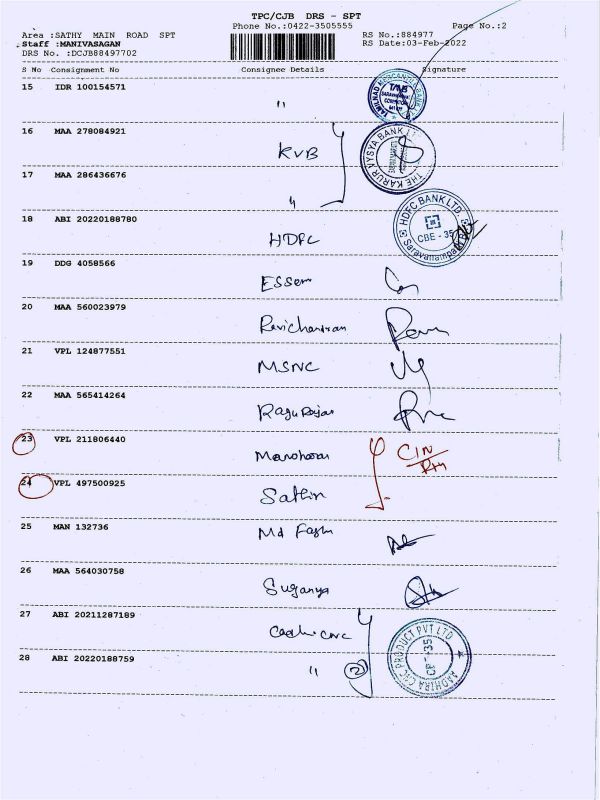 TPC/CJB DRS - SPT
Phone No.:0422-3505555
Page No.:2
Area :SATHY MAIN ROAD SPT
RS No.:884977
Staff :MANIVASAGAN
RS Date:03-Feb-2022
DRS No. :DCJB88497702
S No Consignment No Consignee Details Signature
15 IDR 100154571 "
TMB
16 MAA 278084921 KVB
THE KARUR VYSYA BANK LTD
17 MAA 286436676 "
18 ABI 20220188780 HDFC
HDFC BANK LTD.
CBE - 35
Saravanampatti
19 DDG 4058566 Essem
20 MAA 560023979 Ravichandran
21 VPL 124877551 MSNC
22 MAA 565414264 Ragu Rajan
23 VPL 211806440 Manoharan
24 VPL 497500925 Sathin
25 MAN 132736 Md
26 MAA 564030758 Suganya
27 ABI 20211287189
AADHIRA CNC PRODUCT PVT LTD
28 ABI 20220188759 " 2